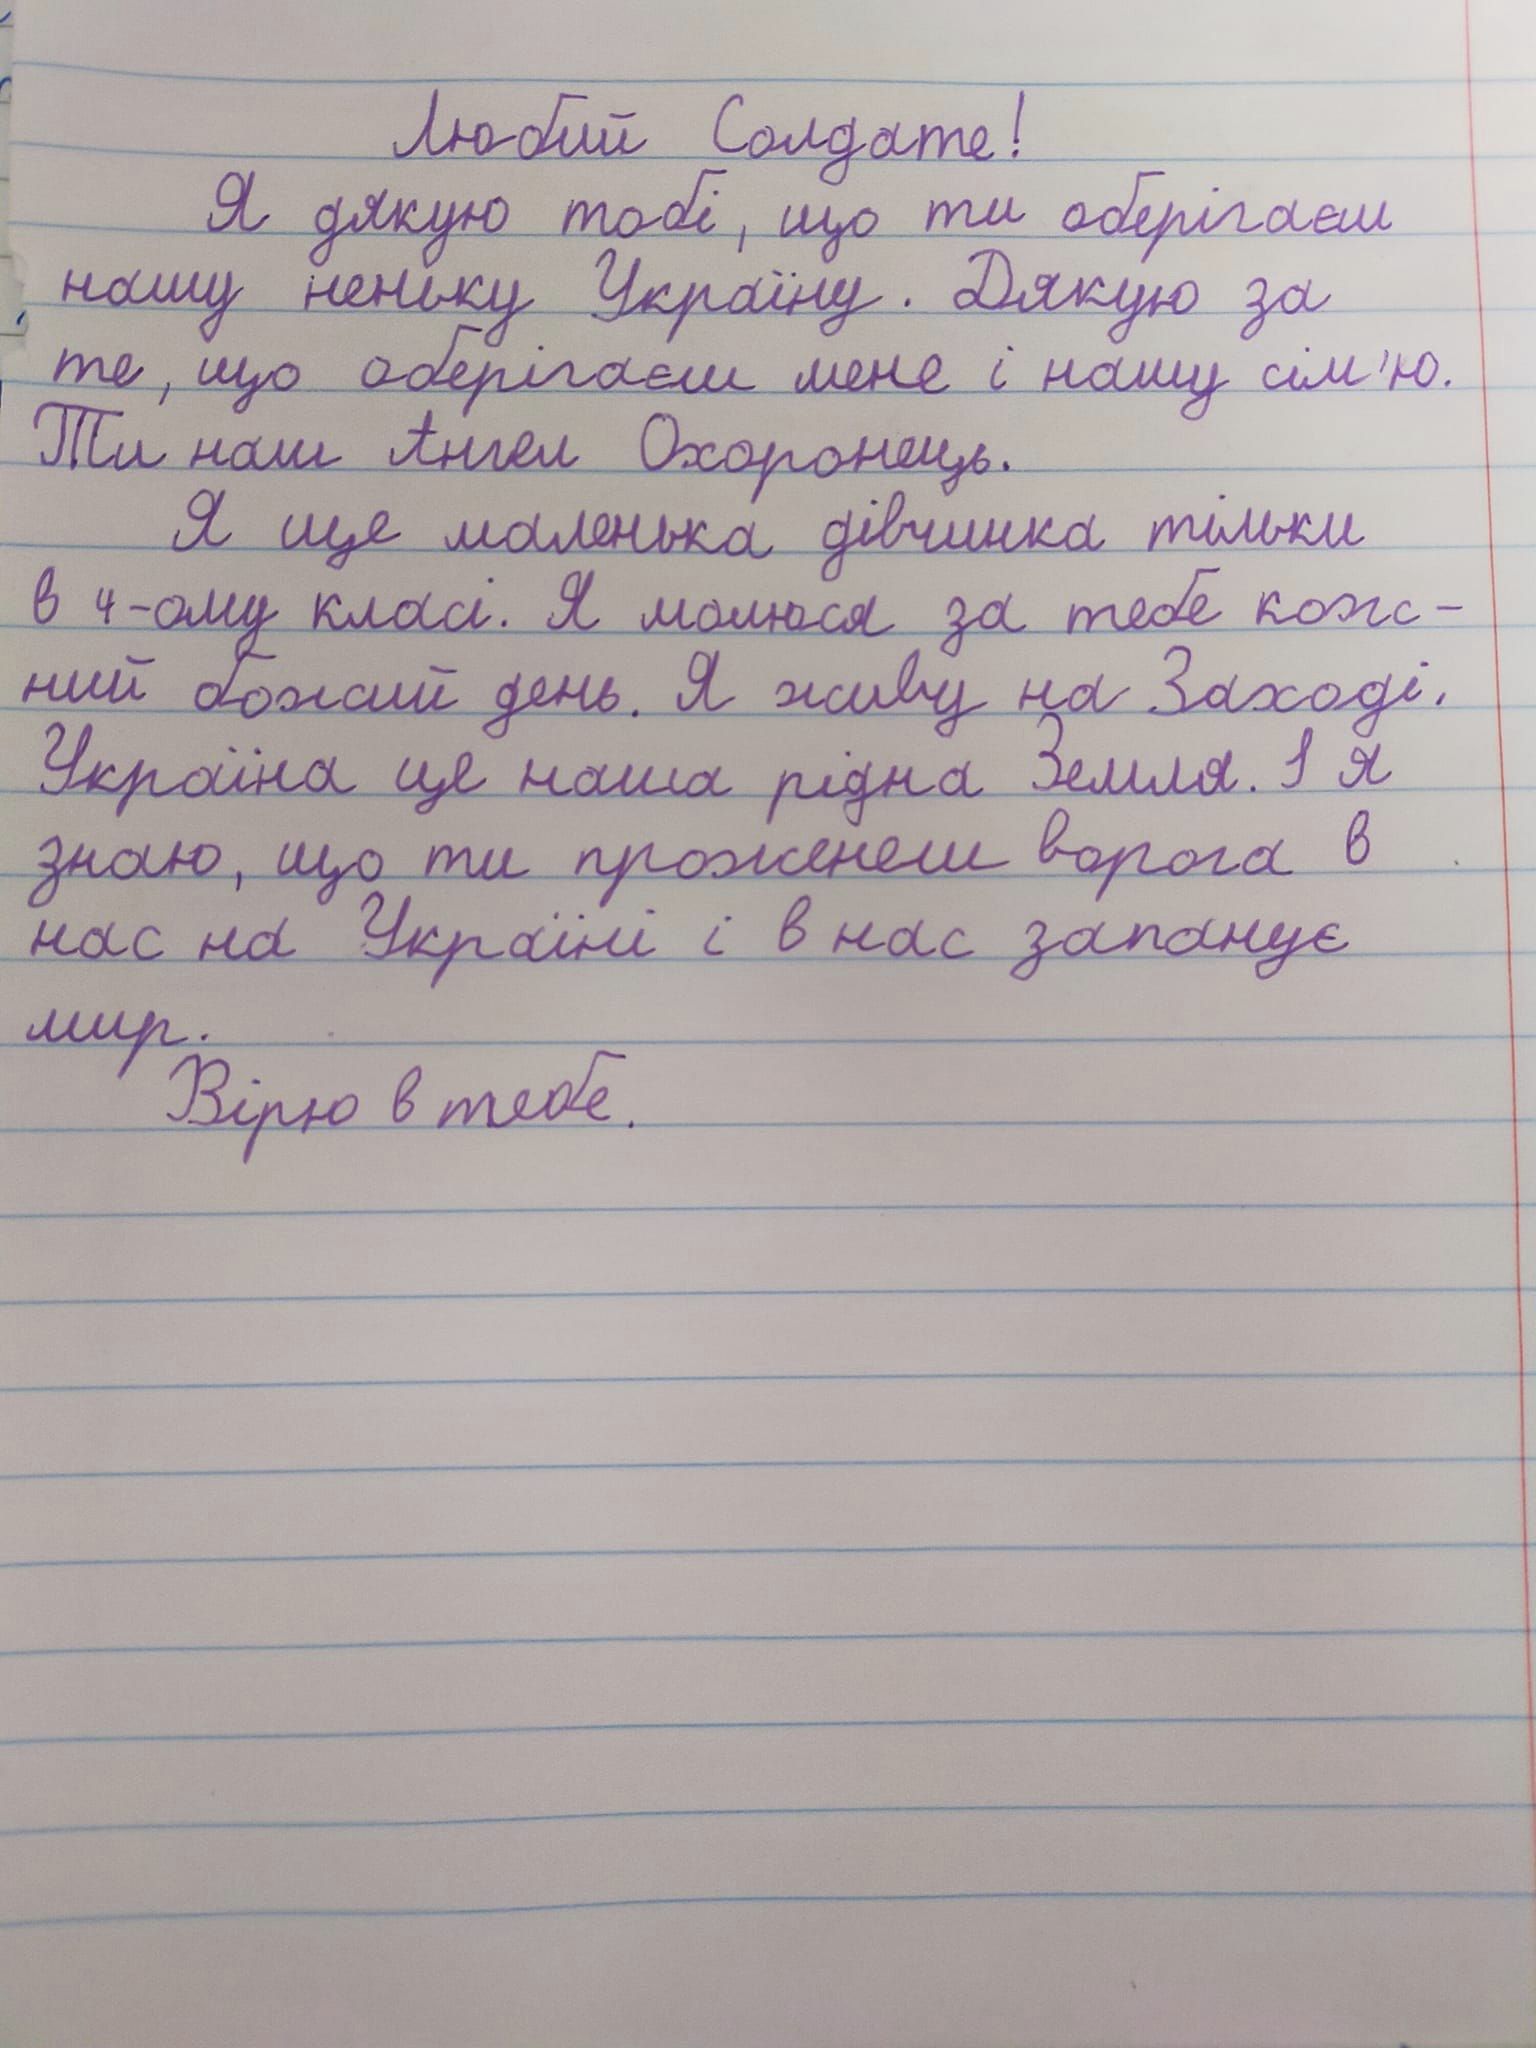 Любий Солдате!
Я дякую тобі, що ти оберігаєш
нашу неньку Україну. Дякую за
те, що оберігаєш мене і нашу сім'ю.
Ти наш Ангел Охоронець.
Я ще маленька дівчинка тільки
в 4-ому класі. Я молюся за тебе кож-
ний божий день. Я живу на Заході.
Україна це наша рідна Земля. І я
знаю, що ти проженеш ворога в
нас на Україні і в нас запанує
мир.
Вірю в тебе.